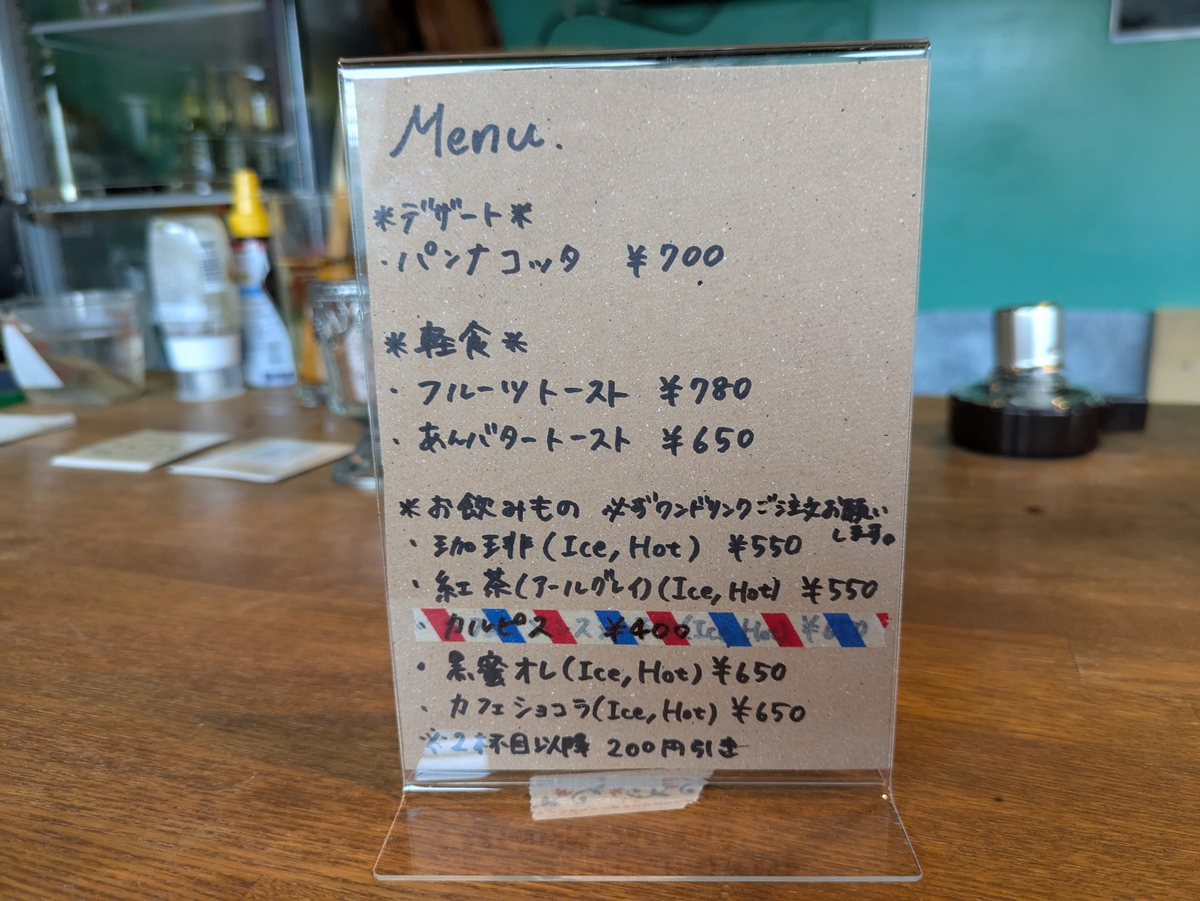 Menu.
*デザート*
・パンナコッタ ¥700
*軽食*
・フルーツトースト ¥780
・あんバタートースト ¥650
*お飲みもの ※必ずワンドリンクご注文お願い
します。
・珈琲(Ice, Hot) ¥550
・紅茶(アールグレイ)(Ice, Hot) ¥550
・カルピス ¥400
・黒蜜オレ(Ice, Hot) ¥650
・カフェショコラ(Ice, Hot) ¥650
※2杯目以降 200円引き